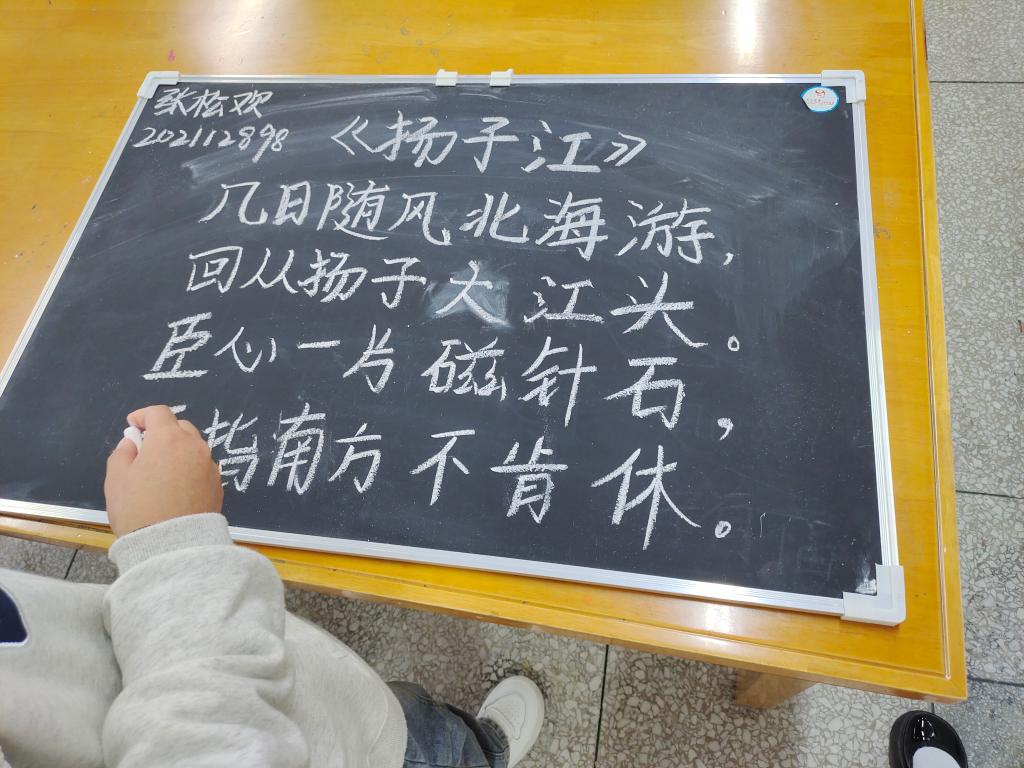 张松欢
202112898
《扬子江》
几日随风北海游,
回从扬子大江头。
臣心一片磁针石,
指南方不肯休。